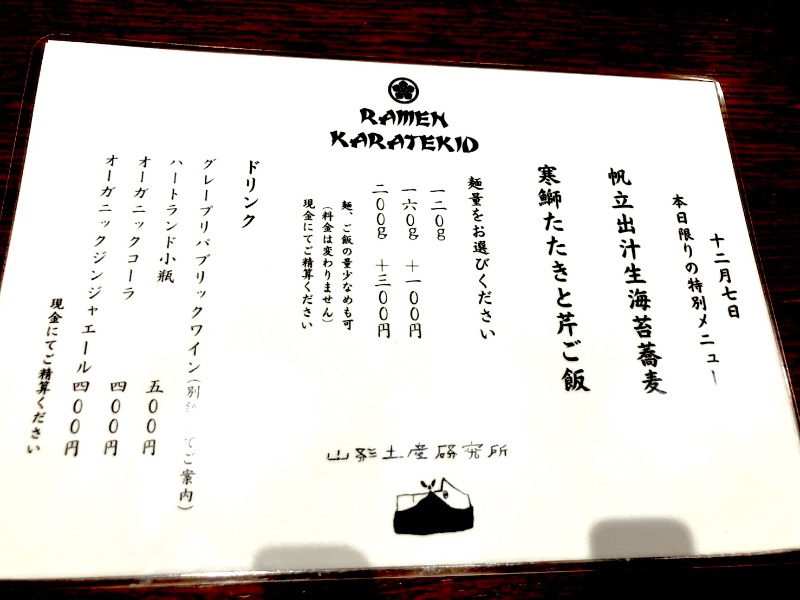 RAMEN
KARATEKID
十二月七日
本日限りの特別メニュー
帆立出汁生海苔蕎麦
寒鰤たたきと芹ご飯
麺量をお選びください
一二〇g
一六〇g +一〇〇円
二〇〇g +三〇〇円
麺、ご飯の量少なめも可
(料金は変わりません)
現金にてご精算ください
ドリンク
グレープリパブリックワイン(別 てご案内)
ハートランド小瓶 五〇〇円
オーガニックコーラ 四〇〇円
オーガニックジンジャエール 四〇〇円
現金にてご精算ください
山形土産研究所